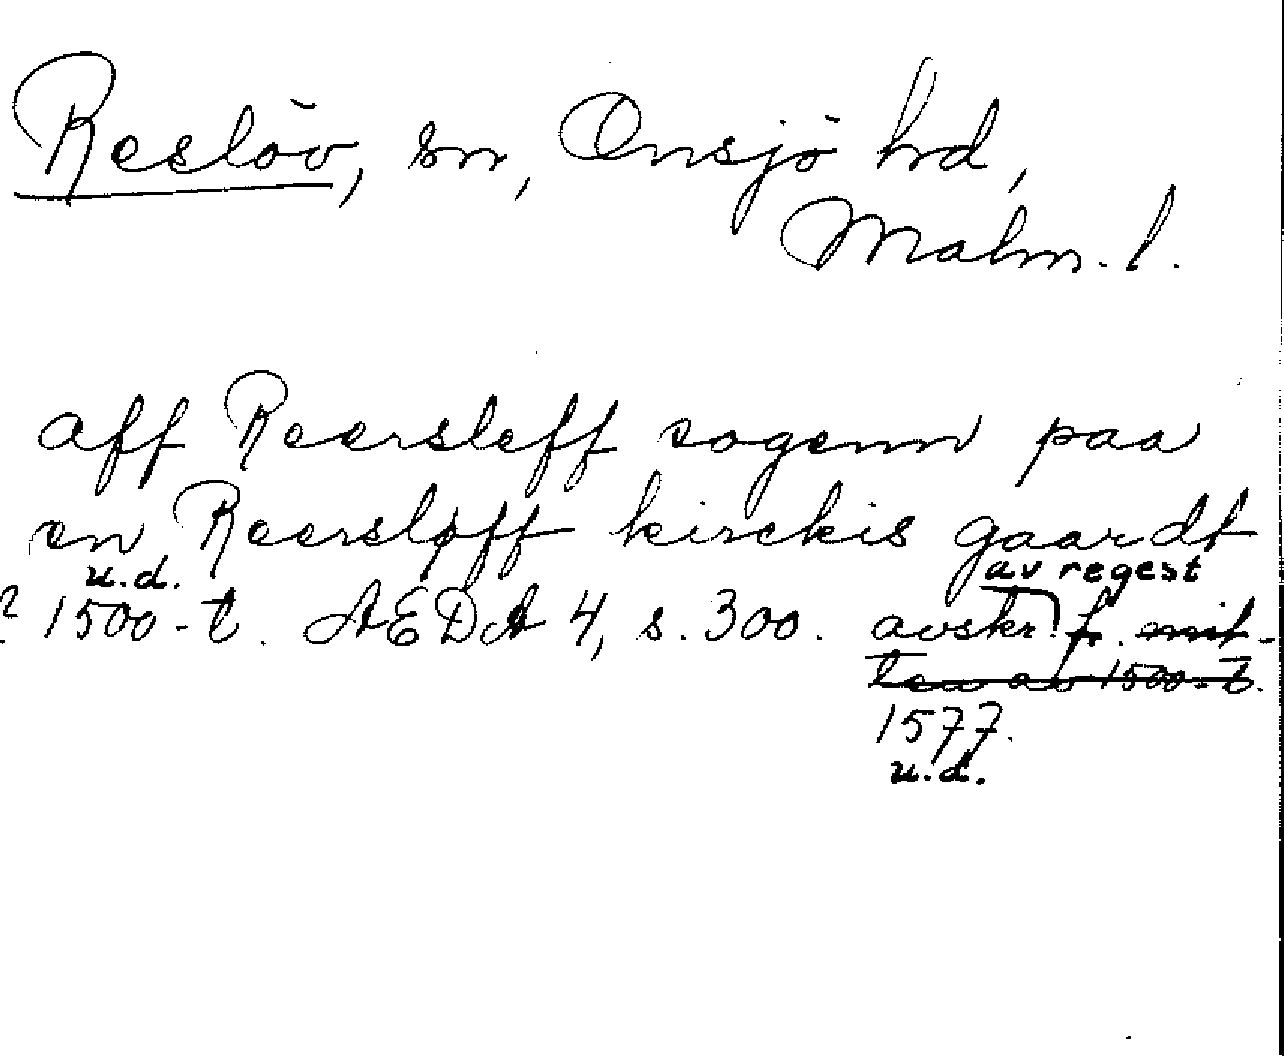 Reslöv, sn, Onsjö hd,
Malm. l.
aff Reersleff sogenn paa
en Reersløff kirckis gaardt
u.d. av regest
? 1500-t. AEDA 4, s. 300. avskr. f. mit-
ten av 1500-t.
1577.
u.d.